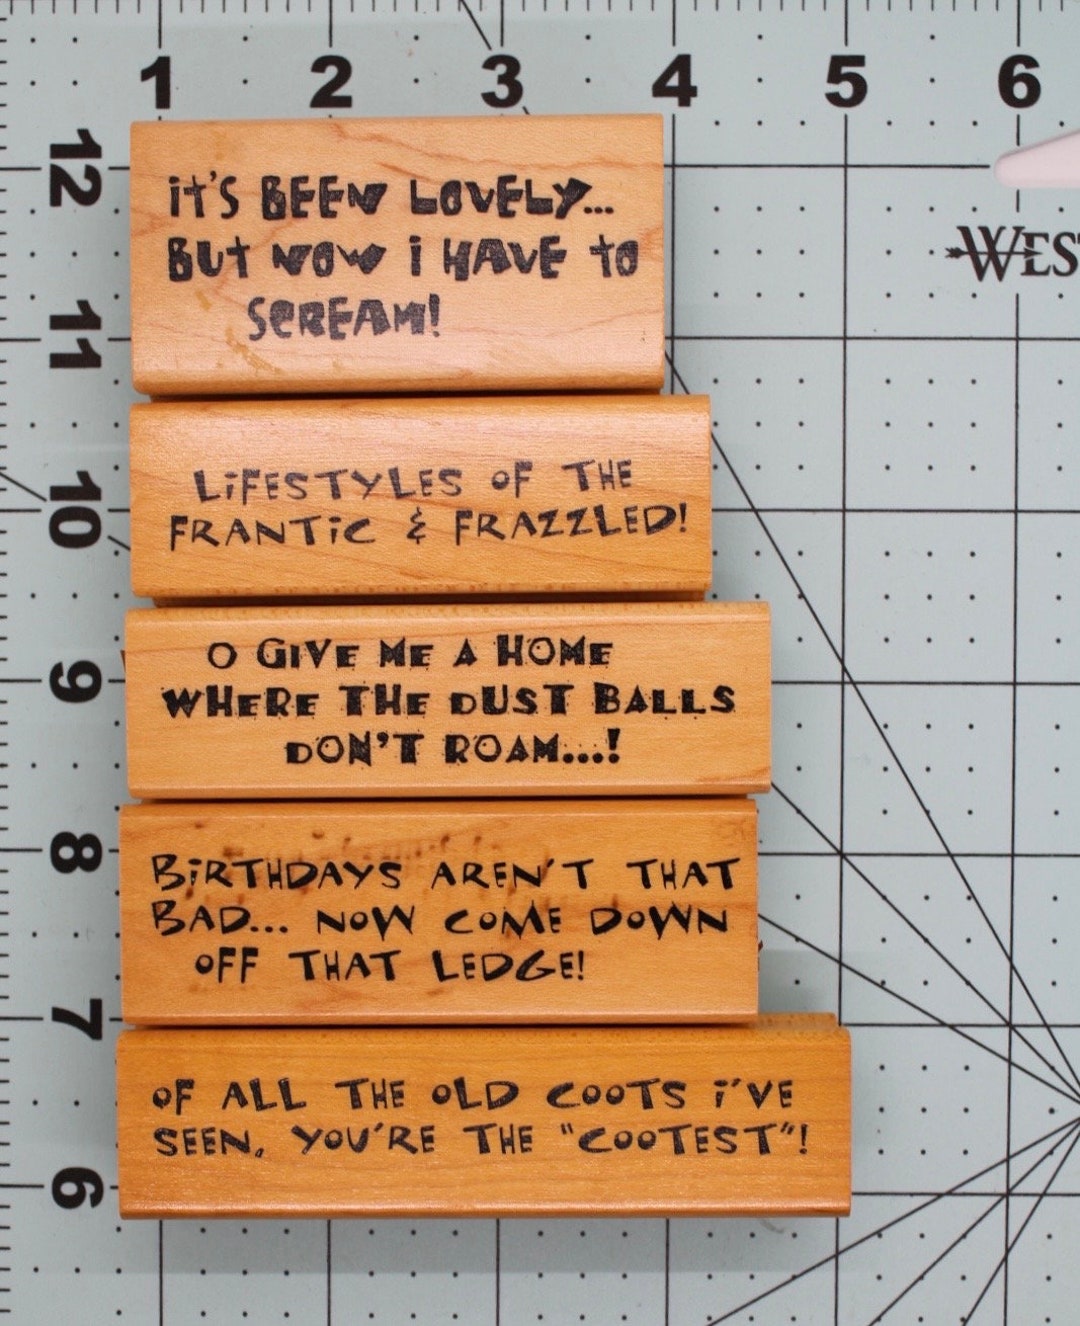 1 2 3 4 5 6
12
iT'S BEEN LOVELY...
BUT NOW i HAVE TO
SCREAM!
11
LiFESTYLES OF THE
FRANTiC & FRAZZLED!
10
O GIVE ME A HOME
WHERE THE DUST BALLS
DON'T ROAM...!
9
BiRTHDAYS AREN'T THAT
BAD... NOW COME DOWN
OFF THAT LEDGE!
8
7
OF ALL THE OLD COOTS i'VE
SEEN, YOU'RE THE "COOTEST"!
6
WES